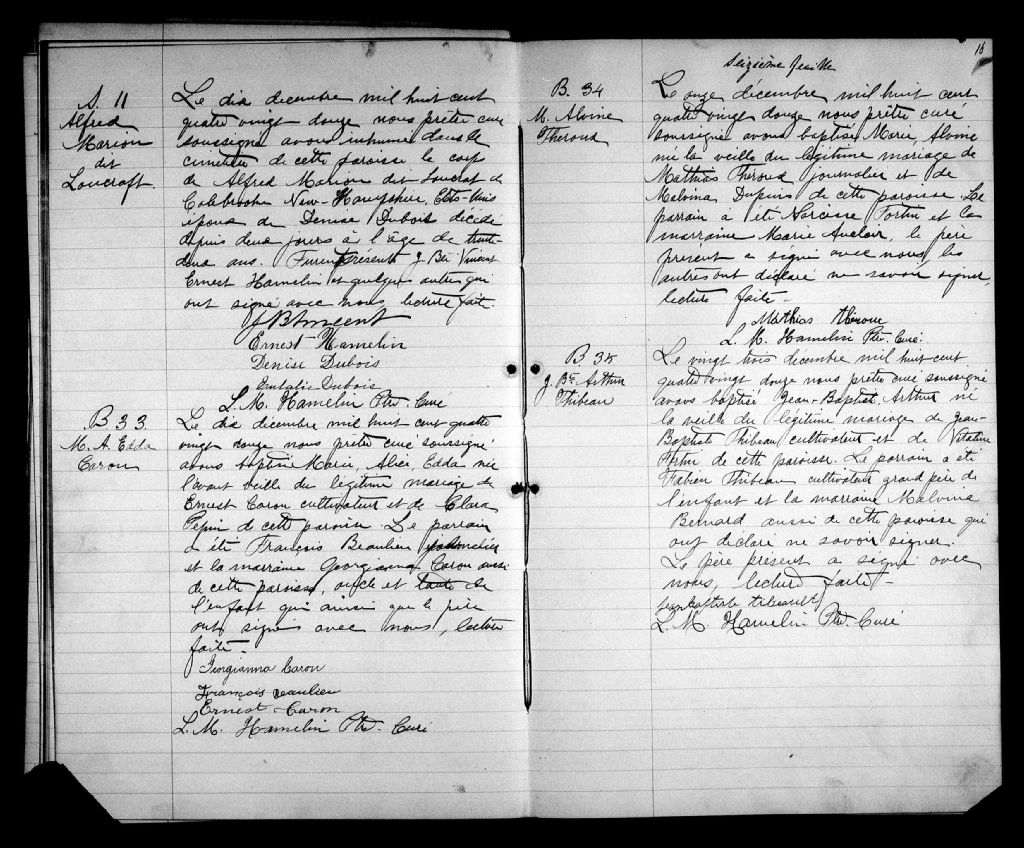 S. 11
Alfred
Marion
dit
Loucroft
Le dix decembre mil huit cent
quatre vingt douze nous prêtre curé
soussigné avons inhumé dans le
cimetière de cette paroisse le corp
de Alfred Marion dit Loucrat de
Colebrooke New-Hampshire, Etats-Unis
époux de Denise Dubois décédé
depuis deux jours à l'âge de trente
deux ans. Furent présents J. Bte Vincent
Ernest Hamelin et quelques autres qui
ont signé avec nous lecture faite
J B Vincent
Ernest Hamelin
Denise Dubois
Eulalie Dubois
L. M. Hamelin Ptr. Curé
B 33
M. A. Edda
Caron
Le dix decembre mil huit cent quatre
vingt douze nous prêtre curé soussigné
avons baptisé Marie, Alice, Edda née
l'avant veille du légitime mariage de
Ernest Caron cultivateur et de Clara
Pepin de cette paroisse. Le parrain
a été François Beaulieu
et la marraine Georgianna Caron aussi
de cette paroisse, oncle et tante de
l'enfant qui ainsi que le père
ont signés avec nous, lecture
faite.
Georgianna Caron
François Beaulieu
Ernest Caron
L. M. Hamelin Ptr. Curé
16
Seizième feuille
B. 34
M. Alvine
Theroux
Le onze décembre mil huit cent
quatre vingt douze nous prêtre curé
soussigné avons baptisé Marie, Alvine
né la veille du légitime mariage de
Mathias Theroux journalier et de
Malvina Dupuis de cette paroisse. Le
parrain a été Narcisse Fortin et la
marraine Marie Auclair, le père
présent a signé avec nous, les
autres ont déclaré ne savoir signer,
lecture faite -
Mathias Theroux
L. M. Hamelin Ptr. Curé.
B. 35
J. Bte. Arthur
Thibeau
Le vingt trois décembre mil huit cent
quatre vingt douze nous prêtre curé soussigné
avons baptisé Jean-Baptiste, Arthur né
la veille du légitime mariage de Jean-
Baptiste Thibeau cultivateur et de Vitaline
Fortin de cette paroisse. Le parrain a été
Fabien Thibeau cultivateur grand père de
l'enfant et la marraine Malvina
Bernard aussi de cette paroisse qui
ont déclaré ne savoir signer.
Le père présent a signé avec
nous, lecture faite -
Jean baptiste tibeault
L. M. Hamelin Ptr. Curé